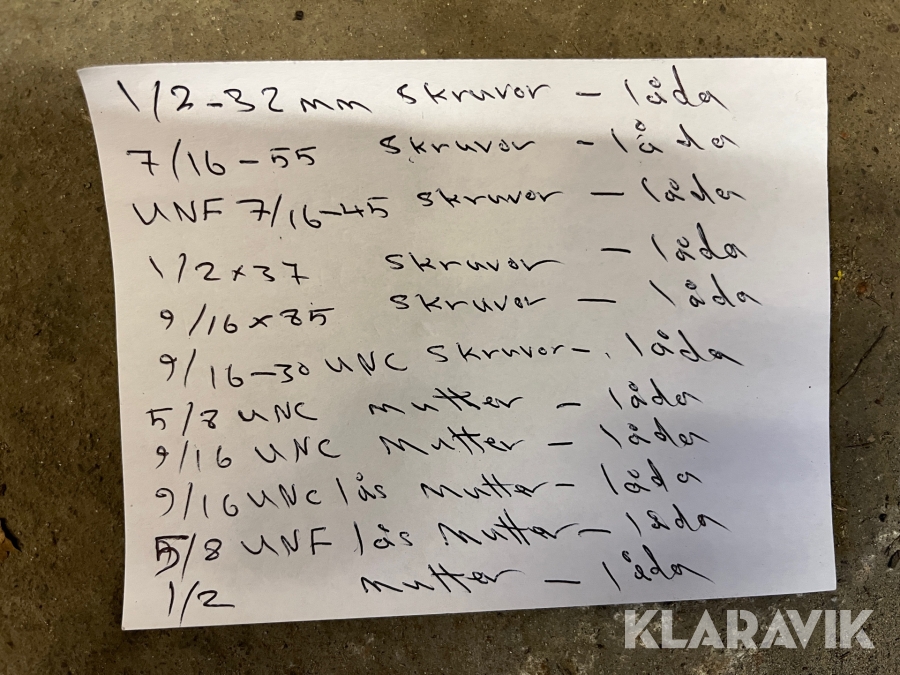 1/2-32 mm skruvor - låda
7/16-55 skruvor - låda
UNF 7/16-45 skruvor - låda
1/2x37 skruvor - låda
9/16x85 skruvor - låda
9/16-30 UNC skruvor - låda
5/8 UNC mutter - låda
9/16 UNC mutter - låda
9/16 UNC lås mutter - låda
5/8 UNF lås mutter - låda
1/2 mutter - låda
KLARAVIK